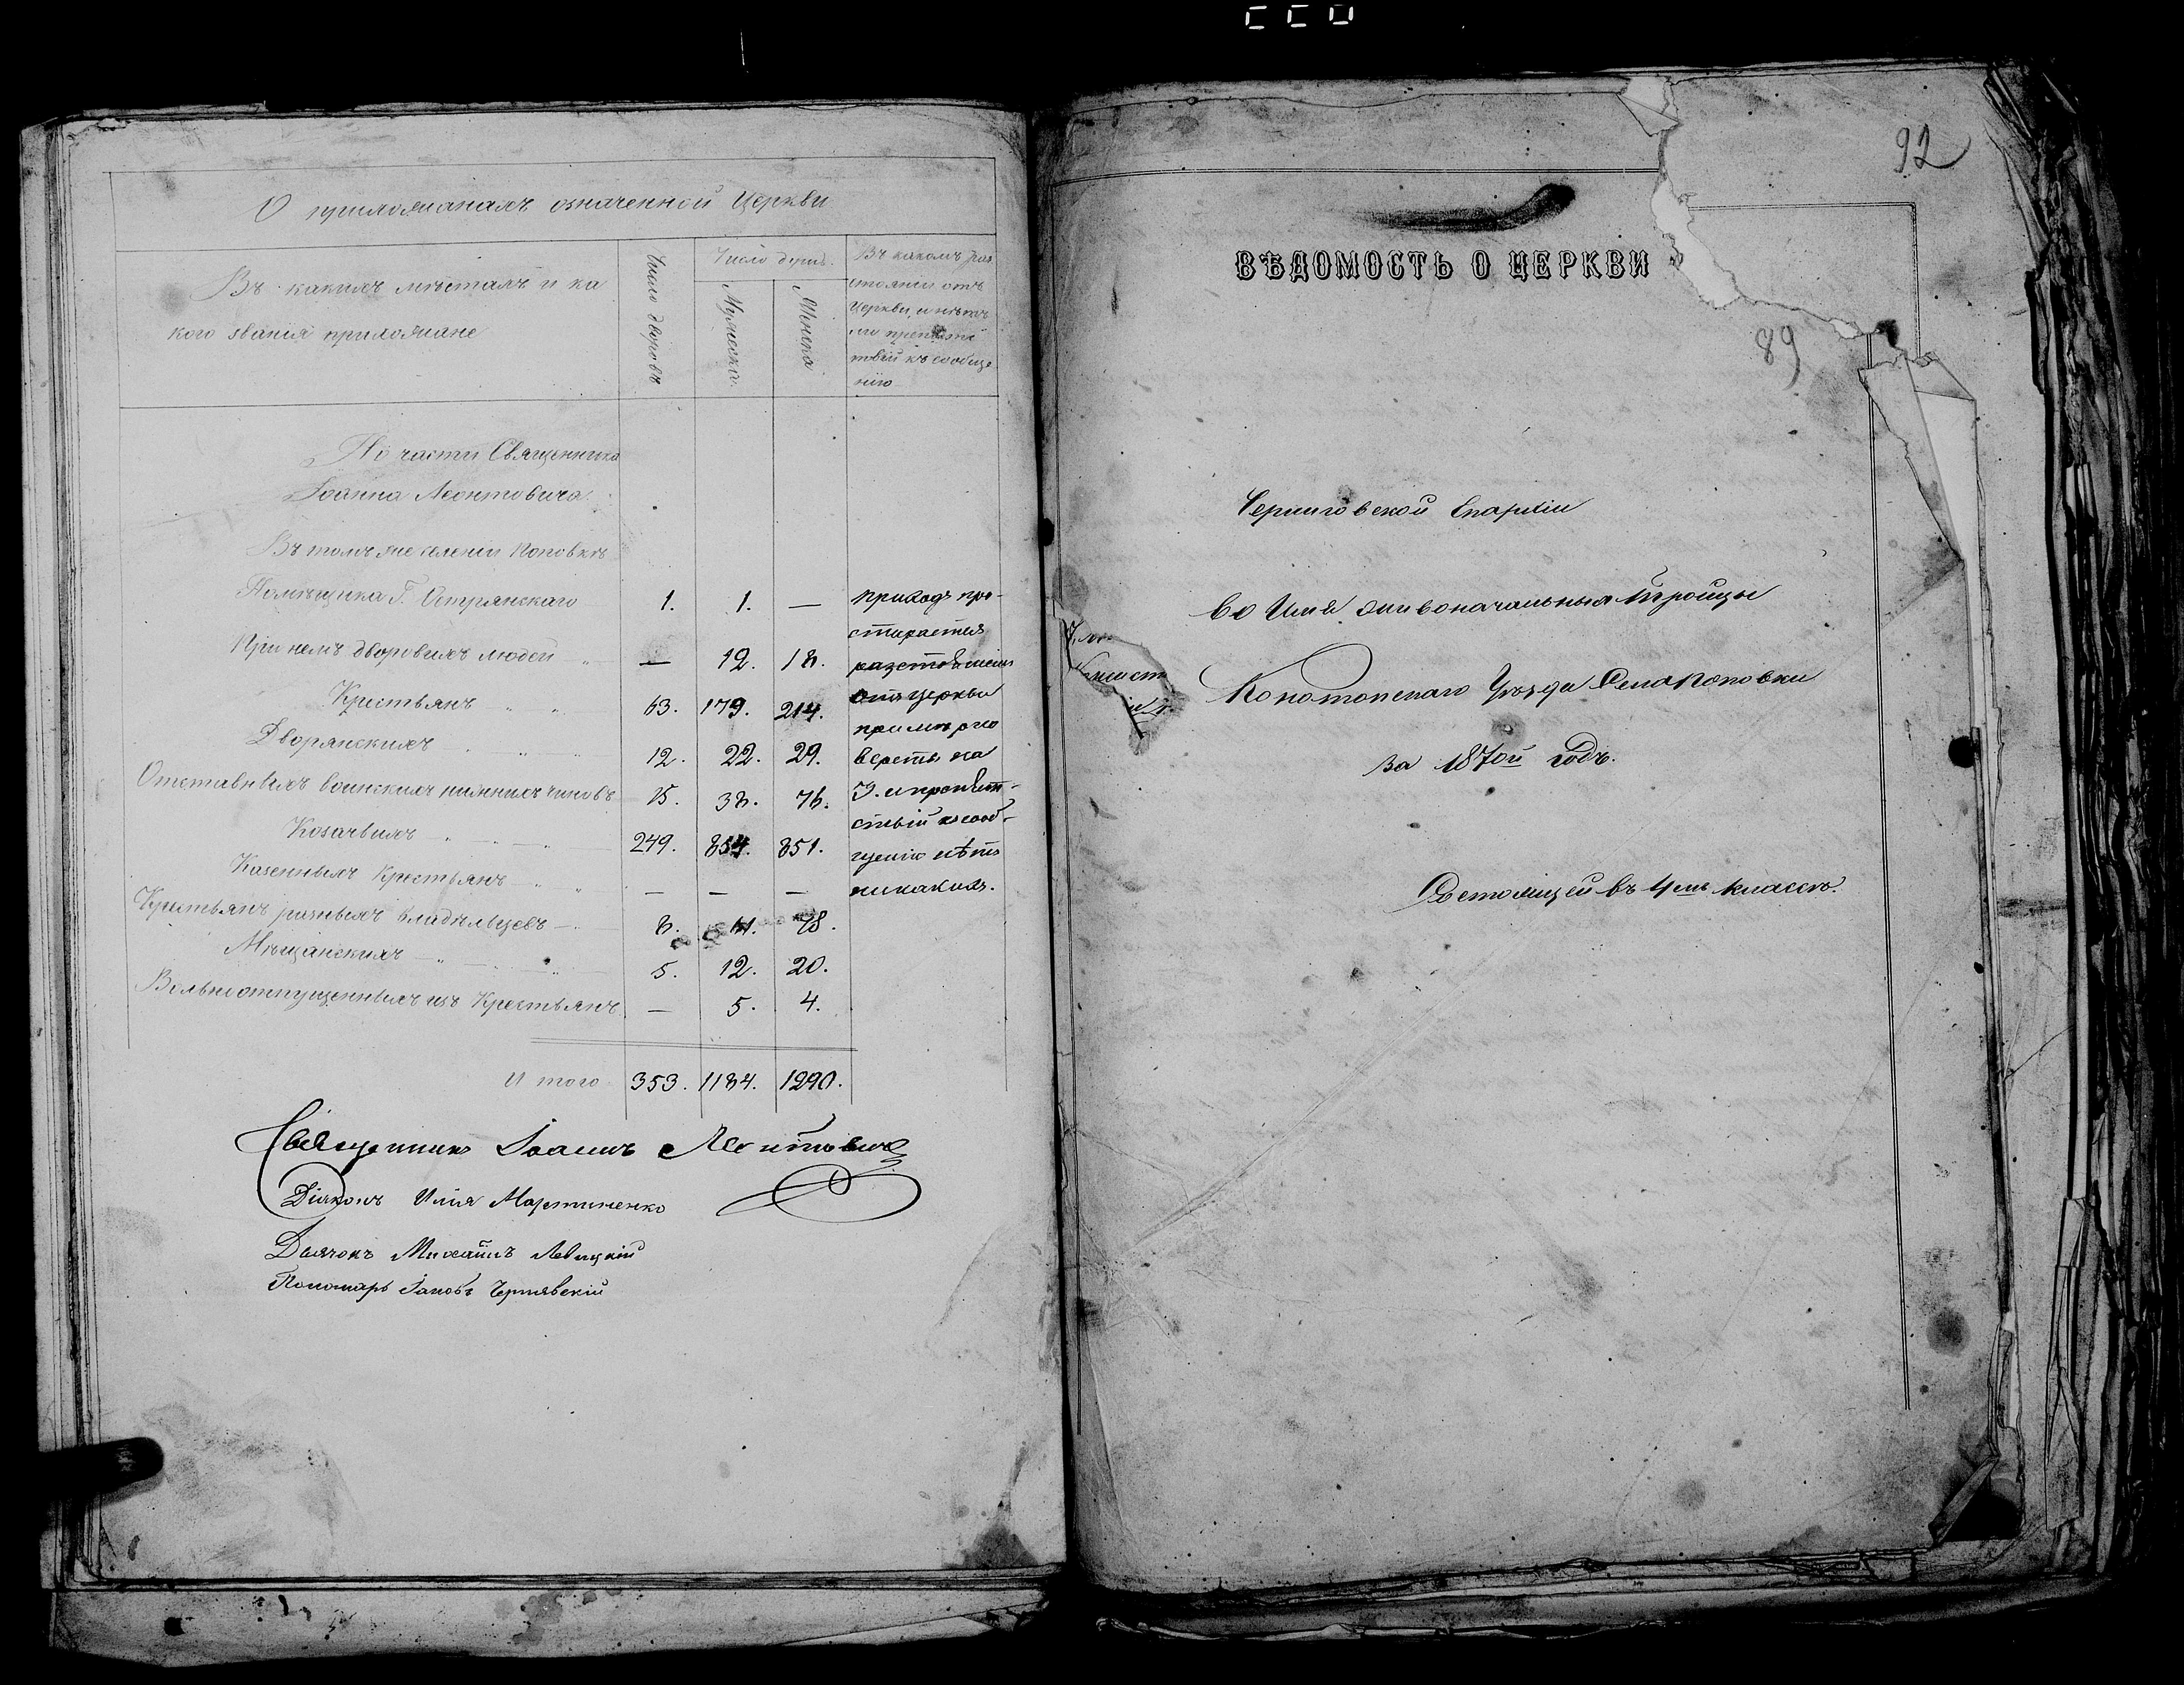 О прихожанахъ означенной Церкви
Въ какихъ мѣстахъ и ка
кого званія прихожане
Число дворовъ
Число душъ.
Мужеска.
Женска
Въ какомъ раз
стояніи отъ
Церкви, и нѣтъ
ли препятс
твій къ сообще
нію
По части Священника
Іоанна Леонтовича.
Въ томъ же селеніи Поповкѣ
Помѣщика Г. Острянскаго 1. 1. —
При немъ дворовыхъ людей „ — 12. 18.
Крестьянъ „ „ 63. 179. 214.
Дворянскихъ „ „ „ 12. 22. 29.
Отставныхъ воинскихъ нижнихъ чиновъ 15. 38. 76.
Козачьихъ „ „ „ 249. 854. 851.
Казенныхъ Крестьянъ „ „ — — —
Крестьянъ разныхъ владѣльцевъ 8. 61. 78.
Мѣщанскихъ „ „ „ 5. 12. 20.
Вольноотпущенныхъ изъ Крестьянъ — 5. 4.
приходъ про-
стирается
разстояніемъ
отъ церкви
примѣрно
верстъ на
3. и препят-
ствій к сооб-
щенію нѣтъ
никакихъ.
И того 353. 1184. 1290.
Священникъ Іоаннъ Леонтовичъ
Діяконъ Илія Мартиненко
Дьячокъ Михаилъ Левицкій
Пономарь Іаковъ Чернявскій
92
ВѢДОМОСТЬ О ЦЕРКВИ
89
Черниговской Епархіи
Во Имя Живоначальныя Троицы
Конотопскаго Уѣзда Села Поповки
за 1870й годъ.
Состоящей въ 4мъ классѣ.